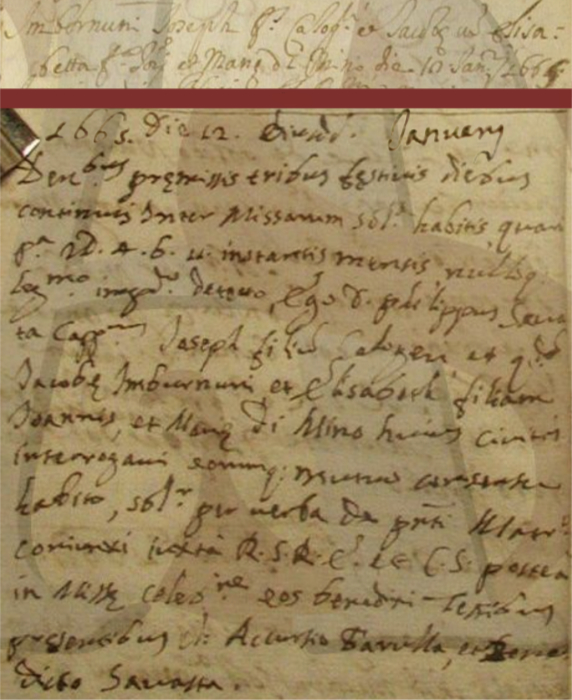 Imburnuni Joseph f.s Calog.i et Jacobe ux Elisa:
betta f. Joes et Mane di Mino die 12 Jan. 1665
1665. Die 12. Januarij
Den.bus premissis tribus festivis diebus
continuis Inter Missarum sol.a habitis quar
p.a 22. 4. 6. u. instantis mensis nulloq
leg.mo imped.to detecto, Ego D. Philippus Sava
ta Capp.nus Joseph filiu Calogeri et q.
Jacobe Imburnuni et Elisabeth filiam
Joannis, et Mane di Mino huius civitis
interrogavi eorumq; mutuo consensu
habito, sol.r per verba de pnti Matr.o
coniunxi iuxta R. S. R. E. et C. S. postea
in Misse celeb.ne eos benedixi Testibus
presentibus cl. Accursio Tarvella, et Bene
dicto Savatta.